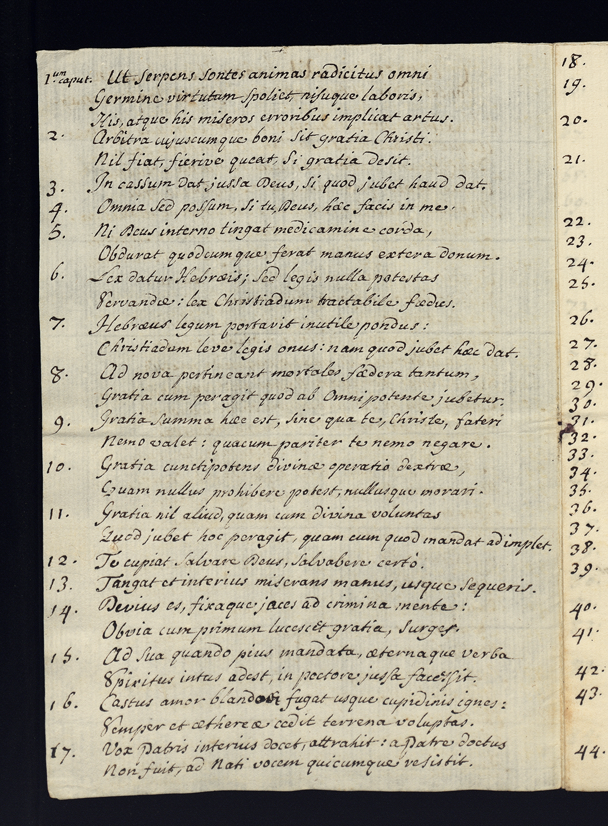 1.um caput. Ut Serpens Sontes animas radicitus omni
Germine virtutum Spoliet, nisuque laboris,
His, atque his miseros erroribus implicat artus.
2. Arbitra cujuscumque boni Sit gratia Christi.
Nil fiat, fierive queat, Si gratia desit.
3. In cassum dat jussa Deus, Si quod jubet haud dat.
4. Omnia Sed possum, Si tu, Deus, hæc facis in me.
5. Ni Deus interno tingat medicamine corda,
Obdurat quodcumque ferat manus extera donum.
6. Lex datur Hebræis; Sed legis nulla potestas
Servandæ: lex Christiadum tractabile fœdus.
7. Hebræus legum portavit inutile pondus:
Christiadum leve legis onus: nam quod jubet hæc dat.
8. Ad nova pertineant mortales fædera tantum,
Gratia cum peragit quod ab Omnipotente jubetur.
9. Gratia Summa hæc est, Sine qua te, Christe, fateri
Nemo valet: quacum pariter te nemo negare.
10. Gratia cunctipotens divinæ operatio dextræ,
Quam nullus prohibere potest, nullusque morari.
11. Gratia nil aliud, quam cum divina voluntas
Quod jubet hoc peragit, quam cum quod mandat adimplet.
12. Te cupiat Salvare Deus, Salvabere certò.
13. Tangat et interius miserans manus, usque Sequeris.
14. Devius es, fixaque jaces ad crimina mente:
Obvia cum primum lucescet gratia, Surges.
15. Ad Sua quando pius mandata, æternaque verba
Spiritus intus adest, in pectore jussa facessit.
16. Castus amor blandæ fugat usque cupidinis ignes:
Semper et æthereæ cedit terrena voluptas.
17. Vox Patris interius docet, attrahit: a Patre doctus
Non fuit, ad Nati vocem quicumque resistit.
18.
19.
20.
21.
22.
23.
24.
25.
26.
27.
28.
29.
30.
31.
32.
33.
34.
35.
36.
37.
38.
39.
40.
41.
42.
43.
44.